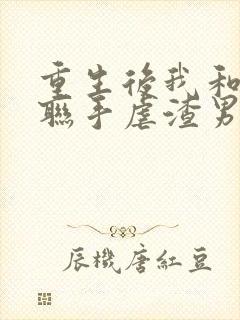 重生後我和
聯手虐渣男
辰機唐紅豆